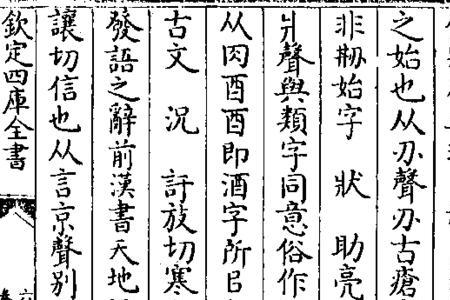 之始也从刅聲刅古瘡
非刱始字 狀 助亮
爿聲與類字同意俗作
从肉酉酉即酒字所㠯
古文 况 許放切寒
發語之辭前漢書天地
讓切信也从言京聲别
欽定四庫全書